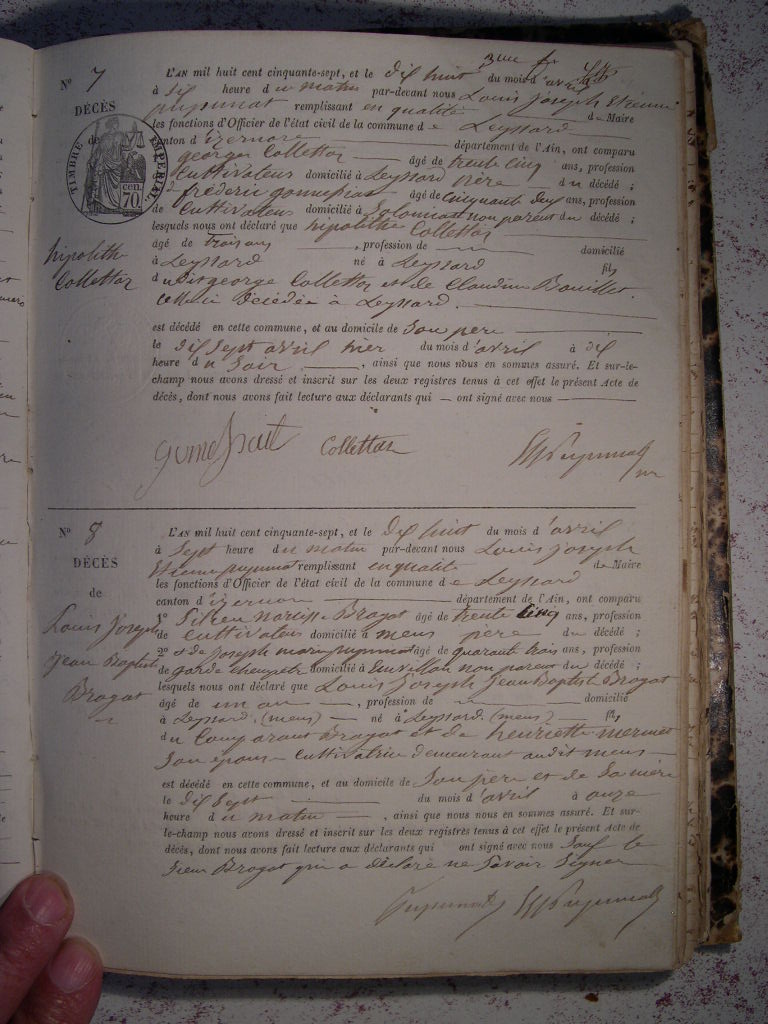 3me f.
N° 7
DÉCÈS
de
TIMBRE IMPÉRIAL
70 cen.
hipolithe
Collettaz
L'AN mil huit cent cinquante-sept, et le dix huit du mois d'avril
à six heure du matin par-devant nous Louis Joseph Etienne
pupunat remplissant en qualité de Maire
les fonctions d'Officier de l'état civil de la commune de Leyssard
canton d'izernore département de l'Ain, ont comparu
george Collettaz âgé de trente cinq ans, profession
Cultivateurs domicilié à Leyssard père du décédé ;
frédéric âgé de cinquante deux ans, profession
de Cultivateurs domicilié à Solomiat non parent du décédé ;
lesquels nous ont déclaré que hipolithe Collettaz
âgé de trois ans, profession de domicilié
à Leyssard né à Leyssard fils
du dit george Collettaz et de Claudine Bouillet
décédée à Leyssard.
est décédé en cette commune, et au domicile de Son père
le dix Sept avril hier du mois d'avril à dix
heure du Soir, ainsi que nous nous en sommes assuré. Et sur-le-
champ nous avons dressé et inscrit sur les deux registres tenus à cet effet le présent Acte de
décès, dont nous avons fait lecture aux déclarants qui — ont signé avec nous
Collettaz
N° 8
DÉCÈS
de
Louis Joseph
Jean Baptiste
Bragat
L'AN mil huit cent cinquante-sept, et le Dix huit du mois d'avril
à Sept heure du matin par-devant nous Louis Joseph
Etienne pupunat remplissant en qualité de Maire
les fonctions d'Officier de l'état civil de la commune de Leyssard
canton d'izernore département de l'Ain, ont comparu
1° Narcisse Bragat âgé de trente cinq ans, profession
de Cultivateurs domicilié à mens père du décédé ;
2° et de Joseph marie pupunat âgé de quarante trois ans, profession
de garde champetre domicilié à non parent du décédé ;
lesquels nous ont déclaré que Louis Joseph Jean Baptiste Bragat
âgé de un an, profession de domicilié
à Leyssard (mens) né à Leyssard (mens) fils
du Comparant Bragat et de henriette mermet
Son épouse Cultivatrice demeurant audit mens
est décédé en cette commune, et au domicile de Son père et de Sa mère
le dix Sept du mois d'avril à onze
heure du matin, ainsi que nous nous en sommes assuré. Et sur-
le-champ nous avons dressé et inscrit sur les deux registres tenus à cet effet le présent Acte de
décès, dont nous avons fait lecture aux déclarants qui ont signé avec nous Sauf le
Sieur Bragat qui a déclaré ne Savoir Signer